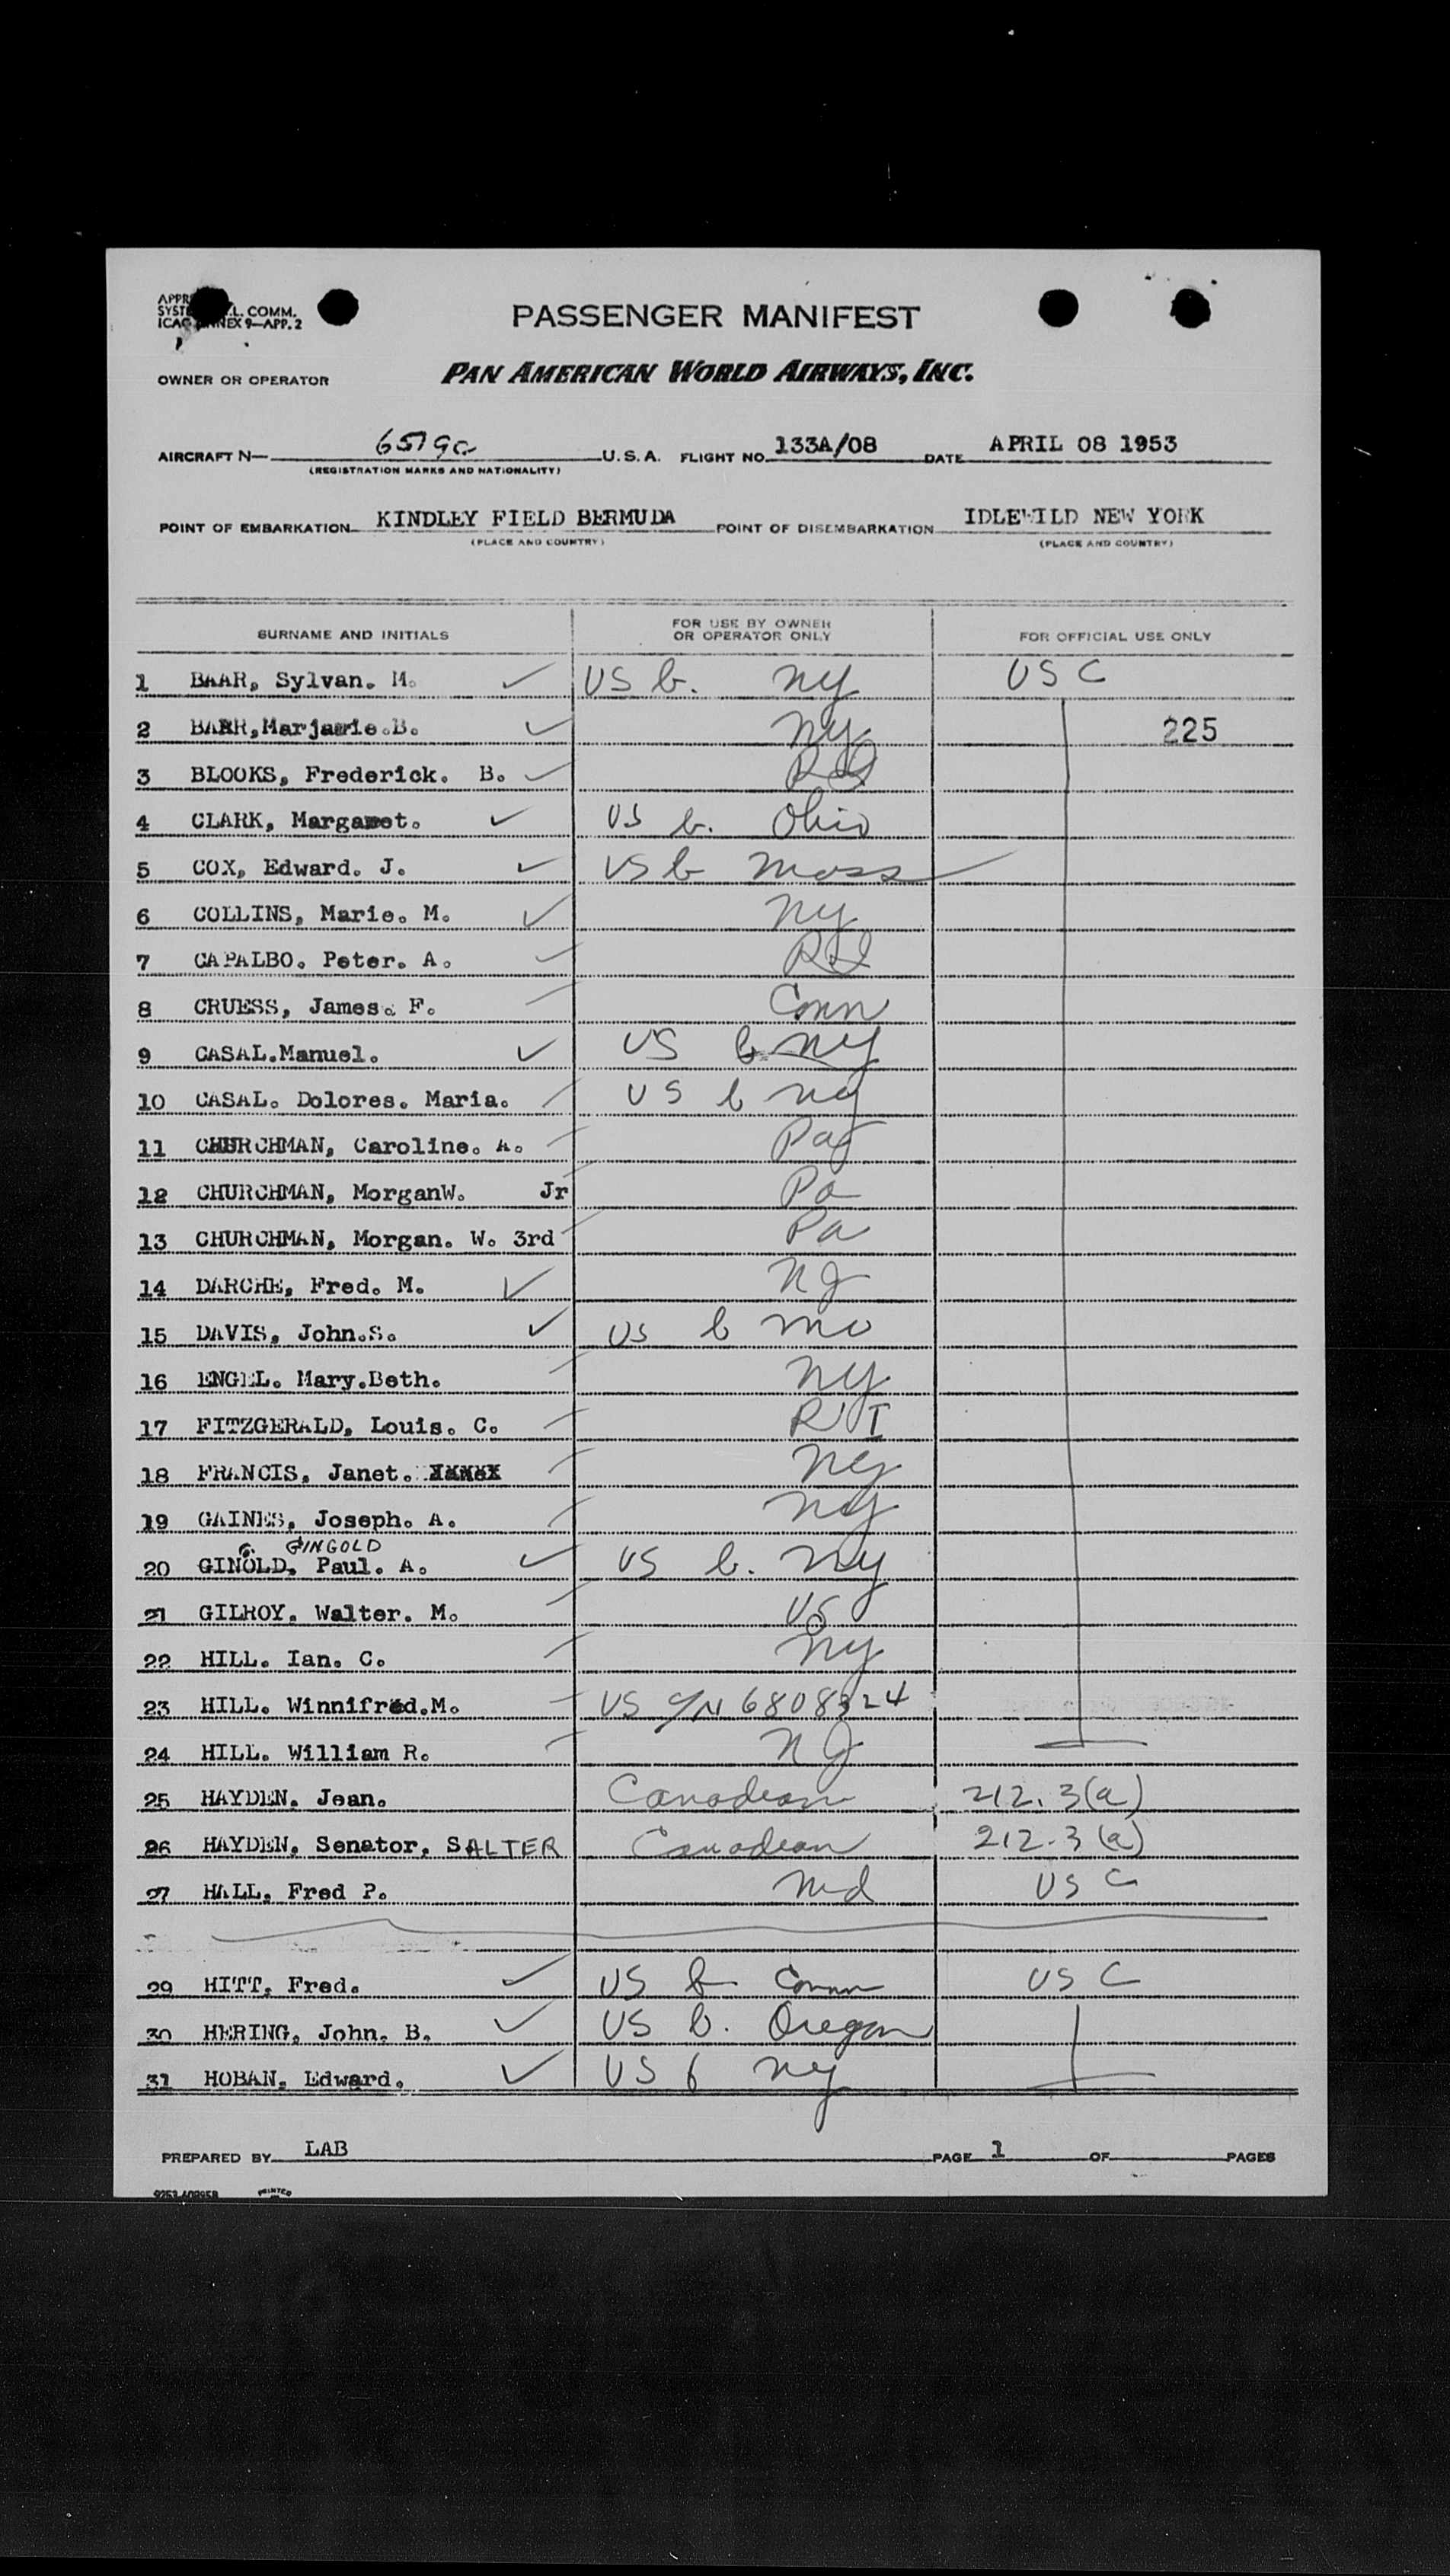 PASSENGER MANIFEST
SYST L. COMM.
ICAO ANNEX 9—APP. 2
OWNER OR OPERATOR PAN AMERICAN WORLD AIRWAYS, INC.
AIRCRAFT N— U.S.A. FLIGHT NO. 133A/08 DATE APRIL 08 1953
(REGISTRATION MARKS AND NATIONALITY)
POINT OF EMBARKATION KINDLEY FIELD BERMUDA POINT OF DISEMBARKATION IDLEWILD NEW YORK
(PLACE AND COUNTRY) (PLACE AND COUNTRY)
SURNAME AND INITIALS FOR USE BY OWNER OR OPERATOR ONLY FOR OFFICIAL USE ONLY
1 BAAR, Sylvan. M. ✓ US b. NY USC
2 BAAR, Marjorie.B. ✓ NY 225
3 BLOOKS, Frederick. B. ✓ RI
4 CLARK, Margaret. ✓ US b. Ohio
5 COX, Edward. J. ✓ US b Mass
6 COLLINS, Marie. M. ✓ NY
7 CAPALBO. Peter. A. RI
8 CRUESS, James. F. Conn
9 CASAL.Manuel. ✓ US b NY
10 CASAL. Dolores. Maria. US b NY
11 CHURCHMAN, Caroline. A. Pa
12 CHURCHMAN, MorganW. Jr Pa
13 CHURCHMAN, Morgan. W. 3rd Pa
14 DARCHE, Fred. M. ✓ NJ
15 DAVIS, John.S. ✓ US b Mo
16 ENGEL. Mary.Beth. NY
17 FITZGERALD, Louis. C. RI
18 FRANCIS, Janet. NY
19 GAINES, Joseph. A. NY
G. GINGOLD
20 GINOLD, Paul. A. ✓ US b. NY
21 GILROY. Walter. M. US
22 HILL. Ian. C. NY
23 HILL. Winnifred.M. US C/N 6808324
24 HILL. William R. NJ
25 HAYDEN. Jean. Canadean 212.3(a)
26 HAYDEN, Senator, SALTER Canadean 212.3(a)
27 HALL, Fred P. Md USC
29 HITT, Fred. ✓ US b Conn USC
30 HERING, John. B. ✓ US b. Oregon
31 HOBAN, Edward. ✓ US b NY
PREPARED BY LAB PAGE 1 OF PAGES
PRINTED